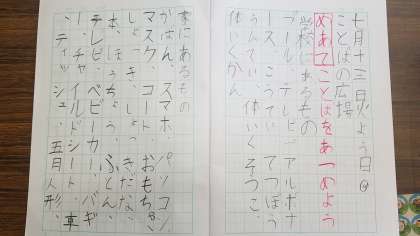 十月十三日火よう日
ことばの広場
めあてことばをあつめよう
学校にあるもの
プール、テレビ、アルボナ
ース、こうてい、てつぼう、
うんてい、体いくそうこ、
体いくかん
家にあるもの
かばん、スマホ、パソコン、
マスク、コート、おもちゃ、
しょっき、しょっきだな、
本、ほうちょう、ふとん、
テレビ、ベビーカー、バギ
ー、チャイルドシート、車、
ティッシュ、五月人形、